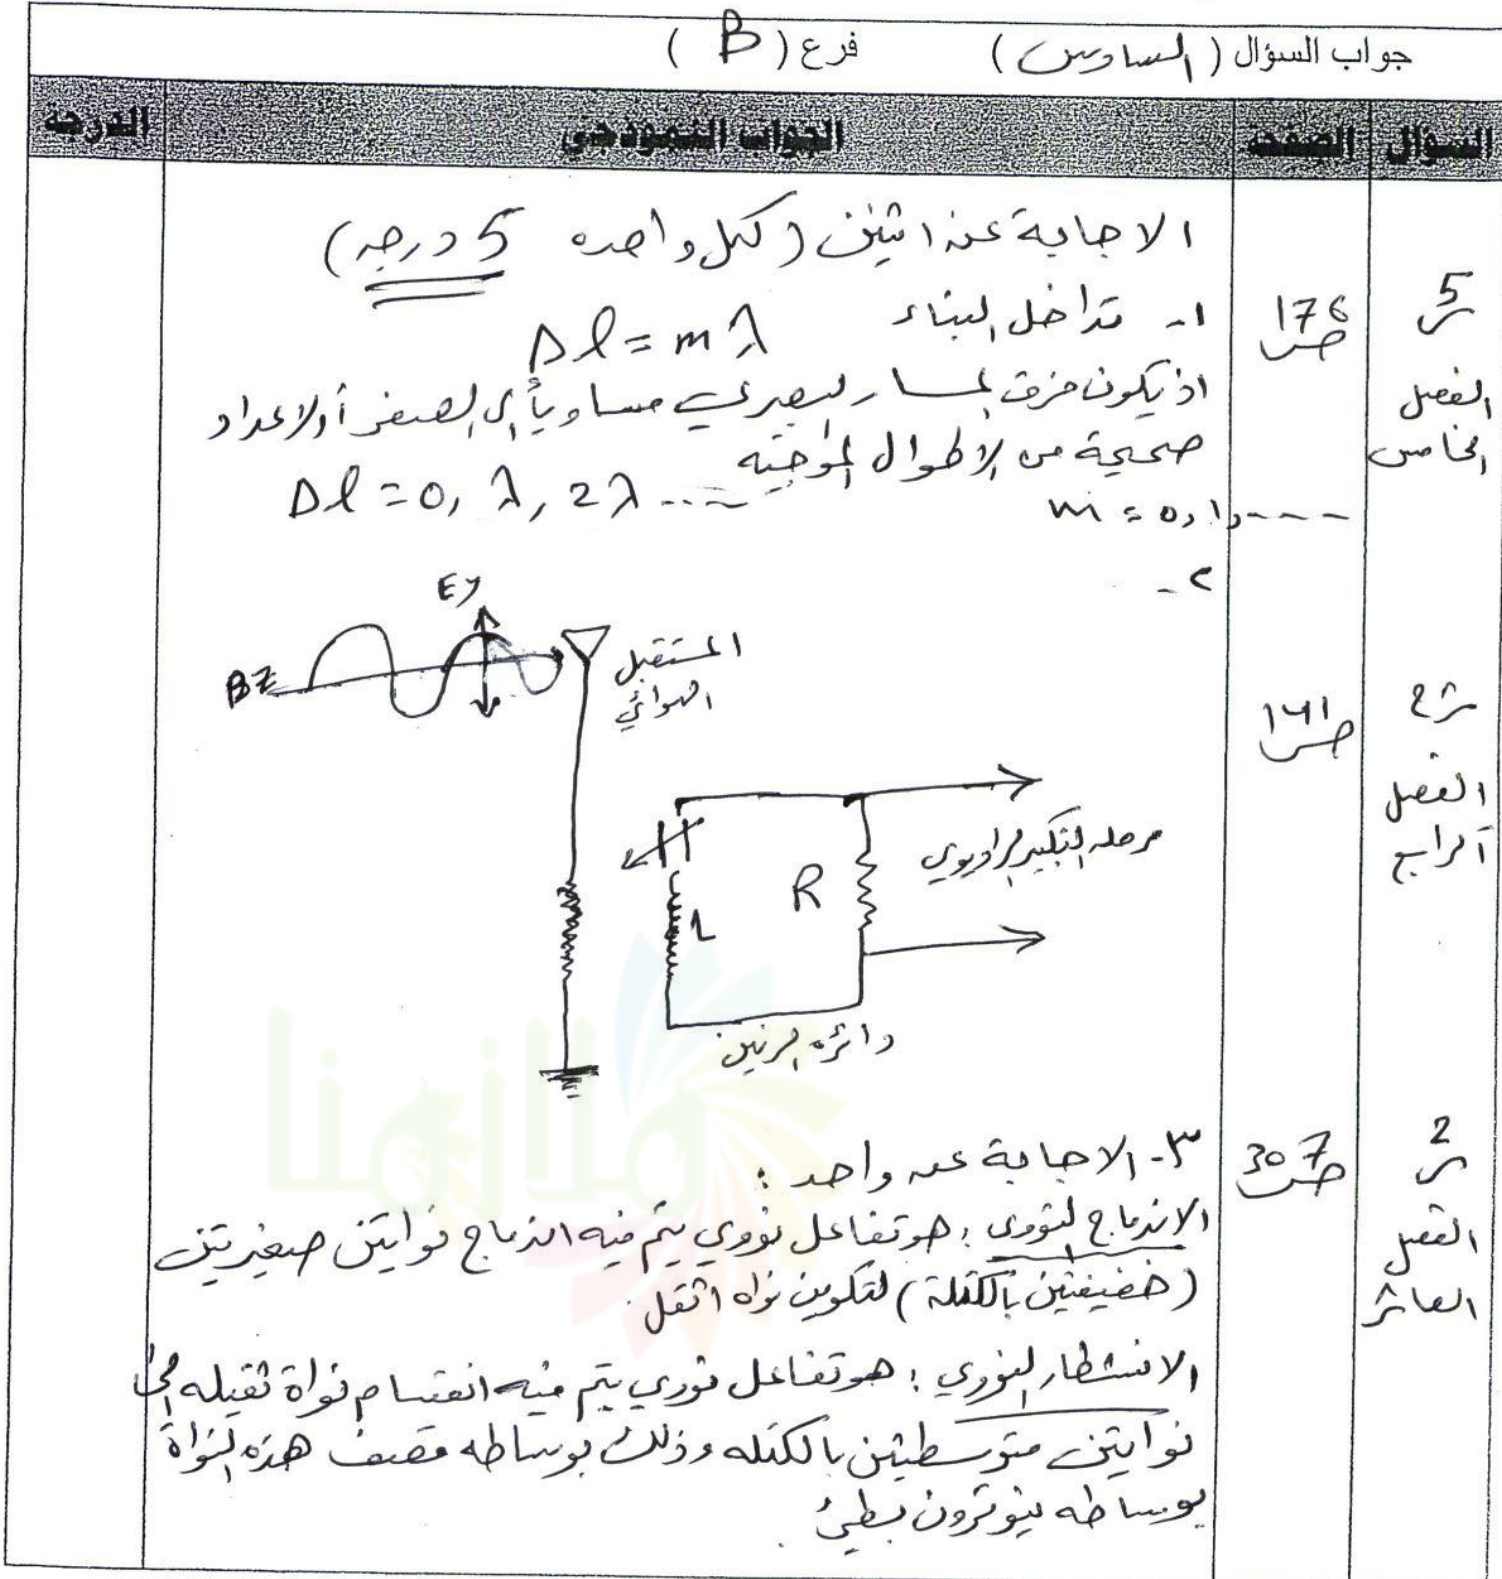 جواب السؤال ( السادس ) فرع ( B )
السؤال الصفحة الجواب النموذجي الدرجة
الاجابة عن اثنين ( لكل واحده 5 درجه )
س5 الفصل الخامس
ص 176
١- تداخل البناء Δl = mλ
اذ يكون فرق المسار البصري مساوياً الى الصفر أو لاعداد
صحيحة من الاطوال الموجيه
Δl = 0, λ, 2λ ----
m = 0, 1, ----
٢-
الفصل الرابع
ص ١٤١
Ey
Bz
المستقبل
الهوائي
مرحله التكبير الراديوي
R
L
دائره الرنين
س2 الفصل العاشر
ص 307
٣- الاجابة عن واحد :
الاندماج النووي : هو تفاعل نووي يتم فيه اندماج نواتين صغيرتين
( خفيفتين بالكتلة ) لتكوين نواه اثقل .
الانشطار النووي : هو تفاعل نووي يتم فيه انقسام نواة ثقيله الى
نواتين متوسطتين بالكتله وذلك بوساطه قصف هذه النواة
بوساطه نيوترون بطيئ .
ملازمنا